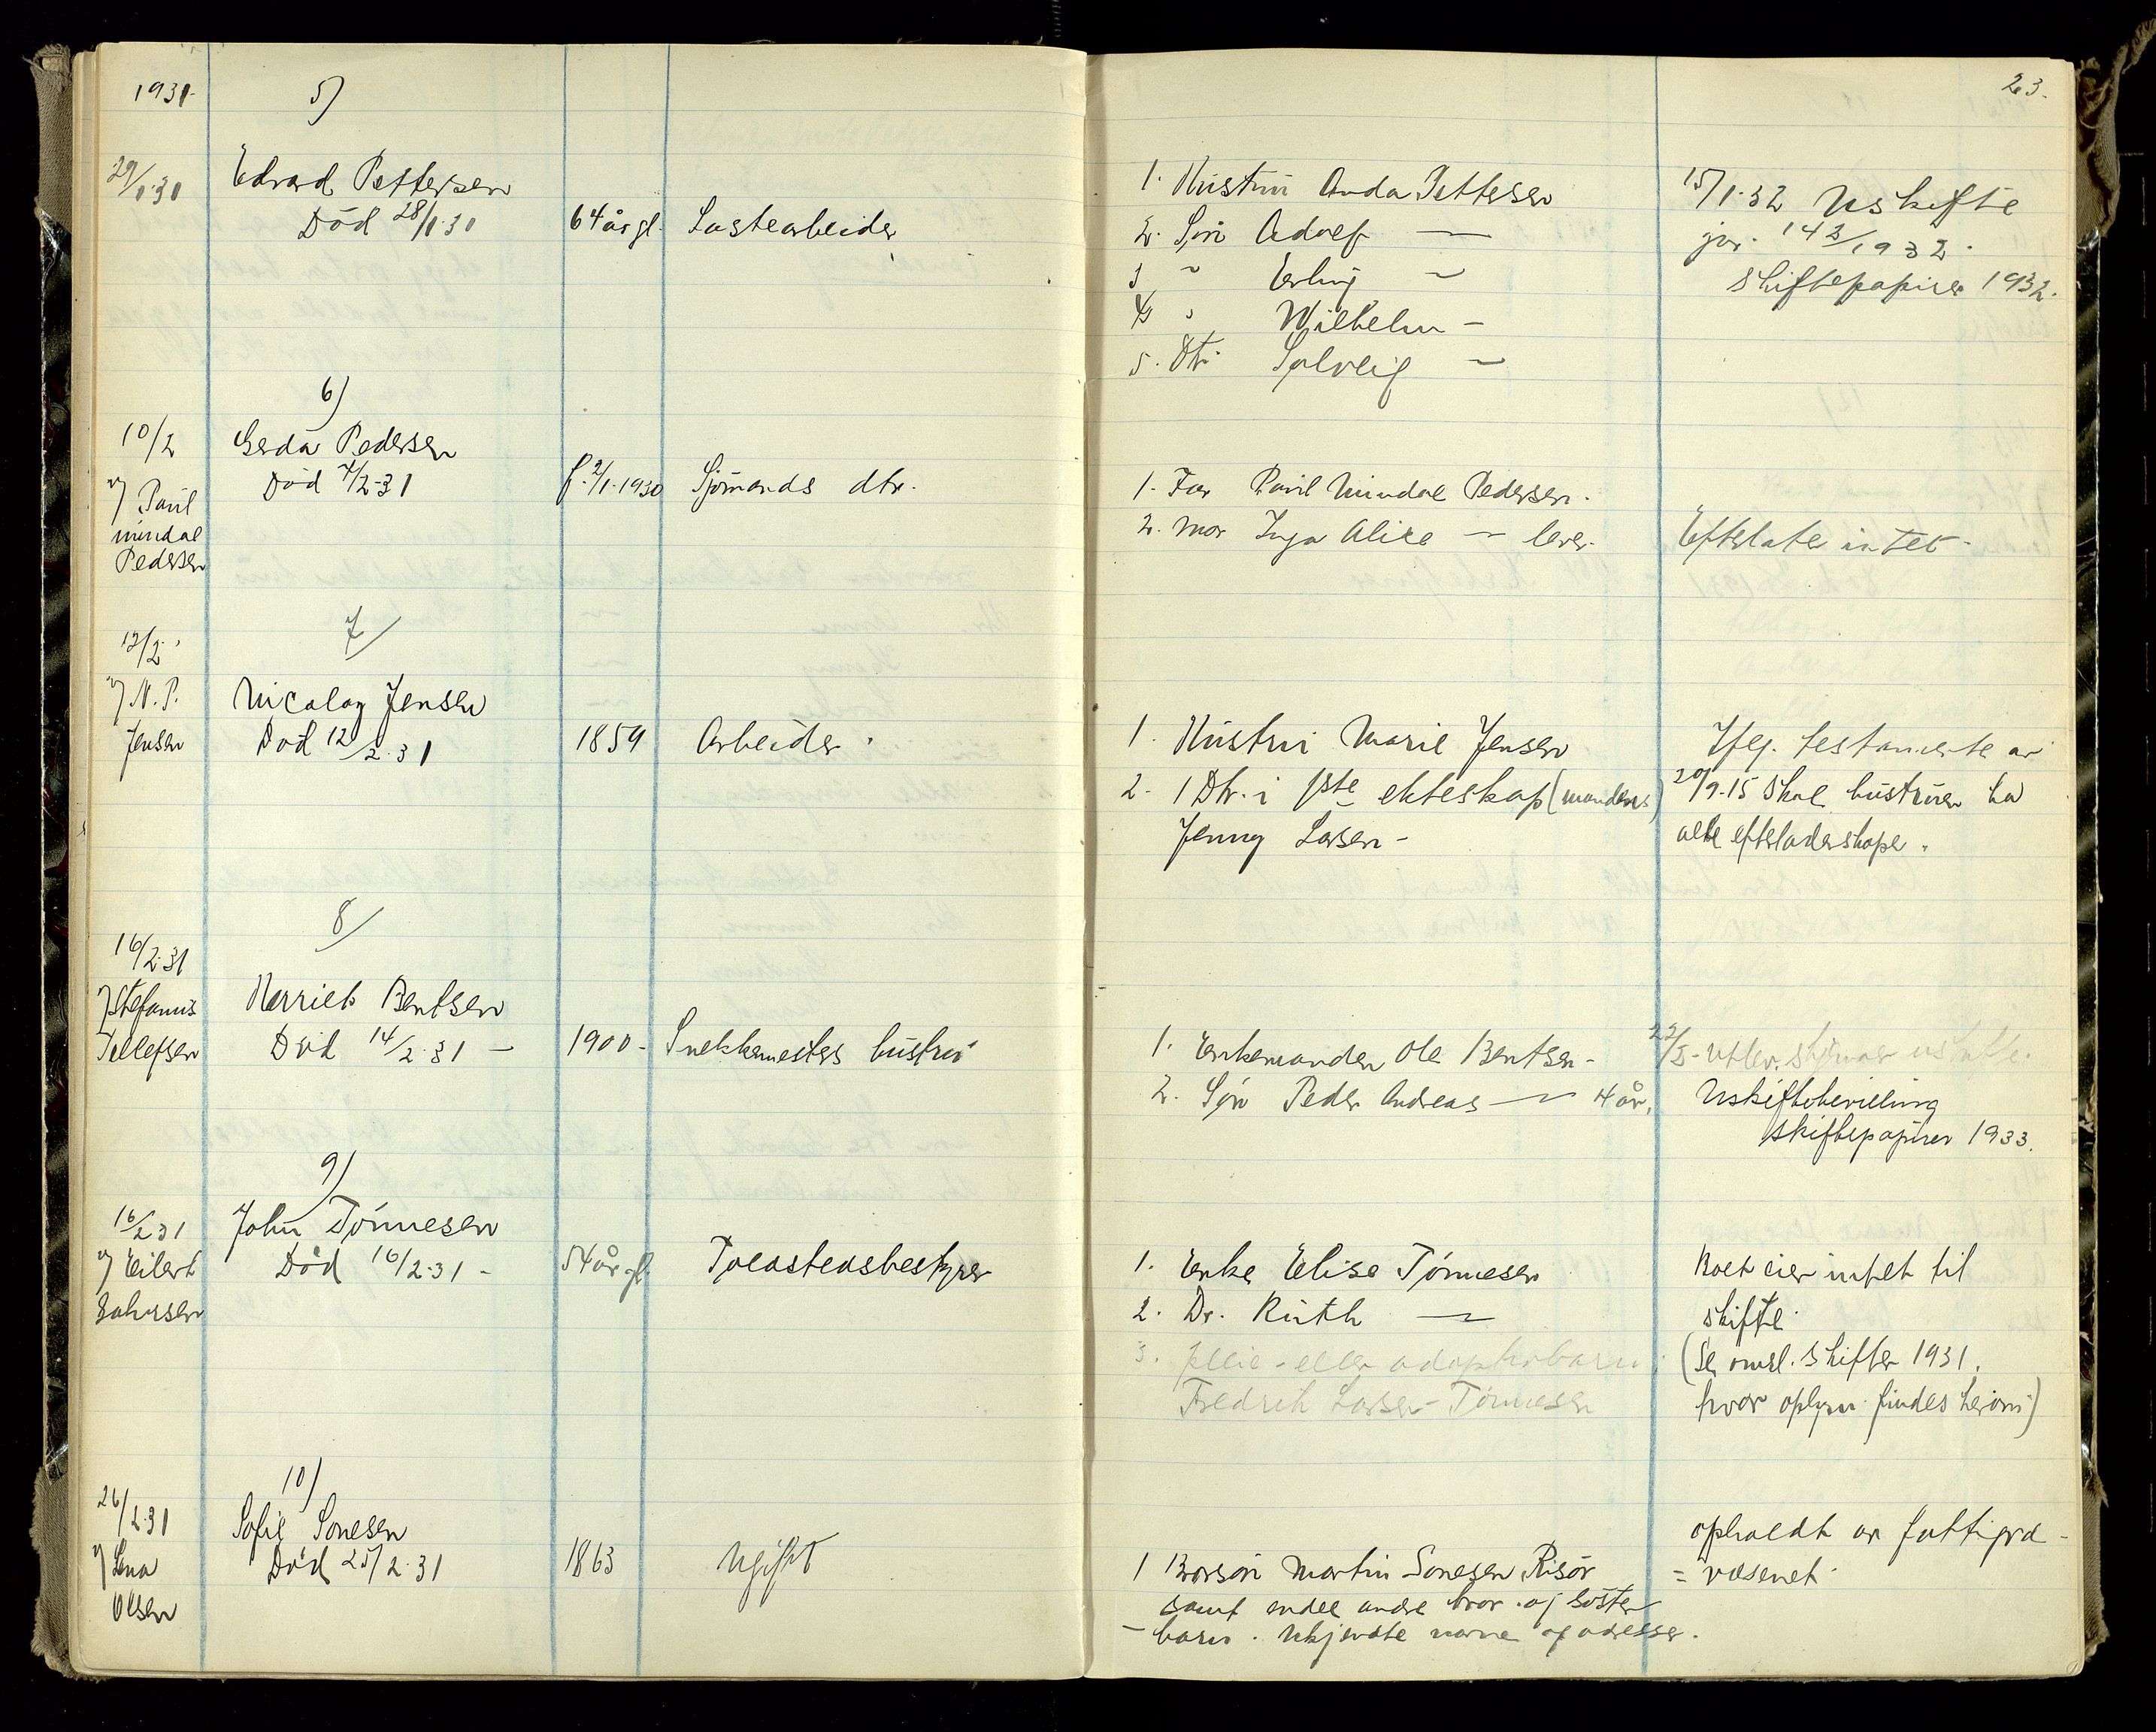 1931.
5)
23.
29/1.31
Edvard Pettersen
Död 28/1.31
64 år gl.
Lastearbeider
1. Hustru Anda Pettersen
2. Sön Adolf —
3 " Erling —
4 " Wilhelm —
5. Dtr. Solveig —
15/1.32 Uskifte
jvr. 143/1932.
Skiftepapirer 1932.
6)
10/2
v/ Paul
Mindal
Pedersen
Gerda Pedersen
Död 7/2-31
f. 2/1.1930
Sjömands dtr.
1. Far Paul Mindal Pedersen.
2. Mor Inga Alice — lever.
Efterlater intet.
7/
12/2.
v/ N. P.
Jensen
Nicolay Jensen
Död 12/2.31
1859
Arbeider.
1. Hustru Marie Jensen
2. 1 Dtr. i 1ste ekteskap (mandens)
Jenny Larsen -
Ifølg. testamente av
20/9-15 skal hustruen ha
alle efterladenskaper.
8/
16/2.31
v/ Stefanus
Tellefsen
Harriet Bentsen
Död 14/2.31 —
1900 -
Snekkemesters hustru
1. Enkemanden Ole Bentsen -
2. Sön Peder Andreas — 4 år.
Uskiftebevilling
Skiftepapirer 1933.
9)
16/2 31
v/ Eilert
John Tönnesen
Död 16/2.31 -
54 år gl.
Tollstedsbestyrer
1. Enke Elise Tönnesen
2. Dr. Ruth —
3. Pleie- eller adoptivbarn
Fredrik Larsen-Tönnesen
Boet eier intet til
skifte.
(Se omsl. Skifter 1931,
hvor oplysn. findes herom)
10)
26/2.31
v/ Lena
Olsen
Sofie Sonesen
Död 25/2.31
1863
Ugift
1 Brorsön Martin Sonesen Risör
samt endel andre bror- og söster
- barn. Ukjendte navne og adresser.
opholdt av fattigvæ-
= vesenet.